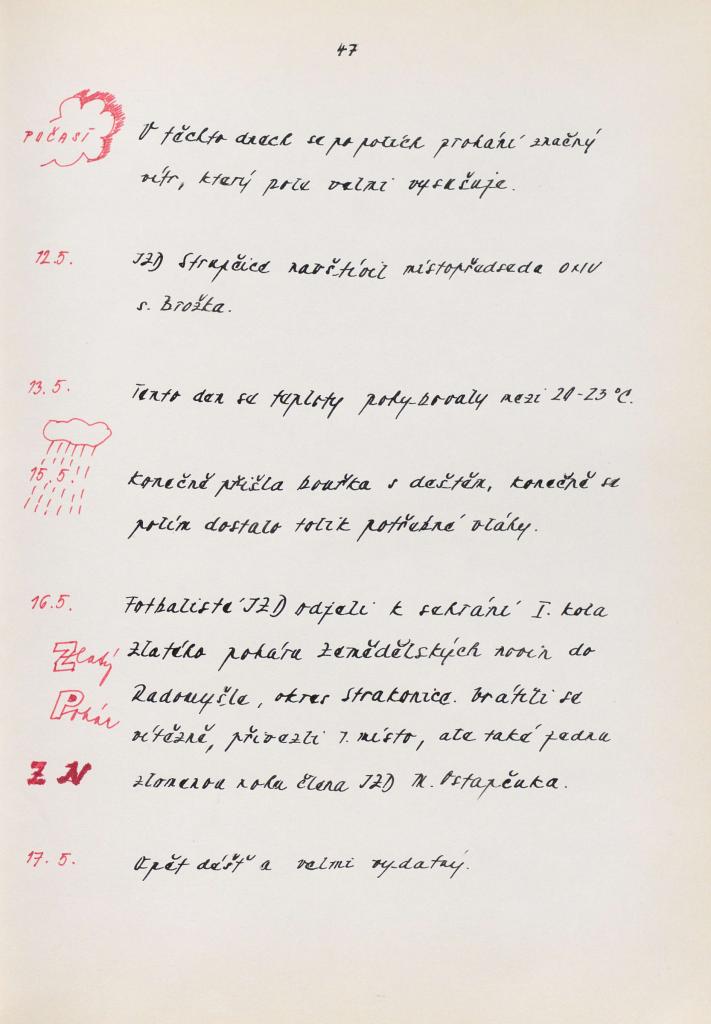 47
POČASÍ
V těchto dnech se po polích prohání značný
vítr, který pole velmi vysušuje.
12.5.
JZD Strupčice navštívil místopředseda ONV
s. Brožka.
13.5.
Tento den se teploty pohybovaly mezi 20-23°C.
15.5.
Konečně přišla bouřka s deštěm, konečně se
polím dostalo tolik potřebné vláhy.
16.5.
Fotbalisté JZD odjeli k sehrání I. kola
Zlatý
Zlatého poháru Zemědělských novin do
Pohár
Radomyšle, okres Strakonice. Vrátili se
vítězně, přivezli 1. místo, ale také jednu
Z N
zlomenou nohu člena JZD M. Ostapčuka.
17.5.
Opět déšť a velmi vydatný.